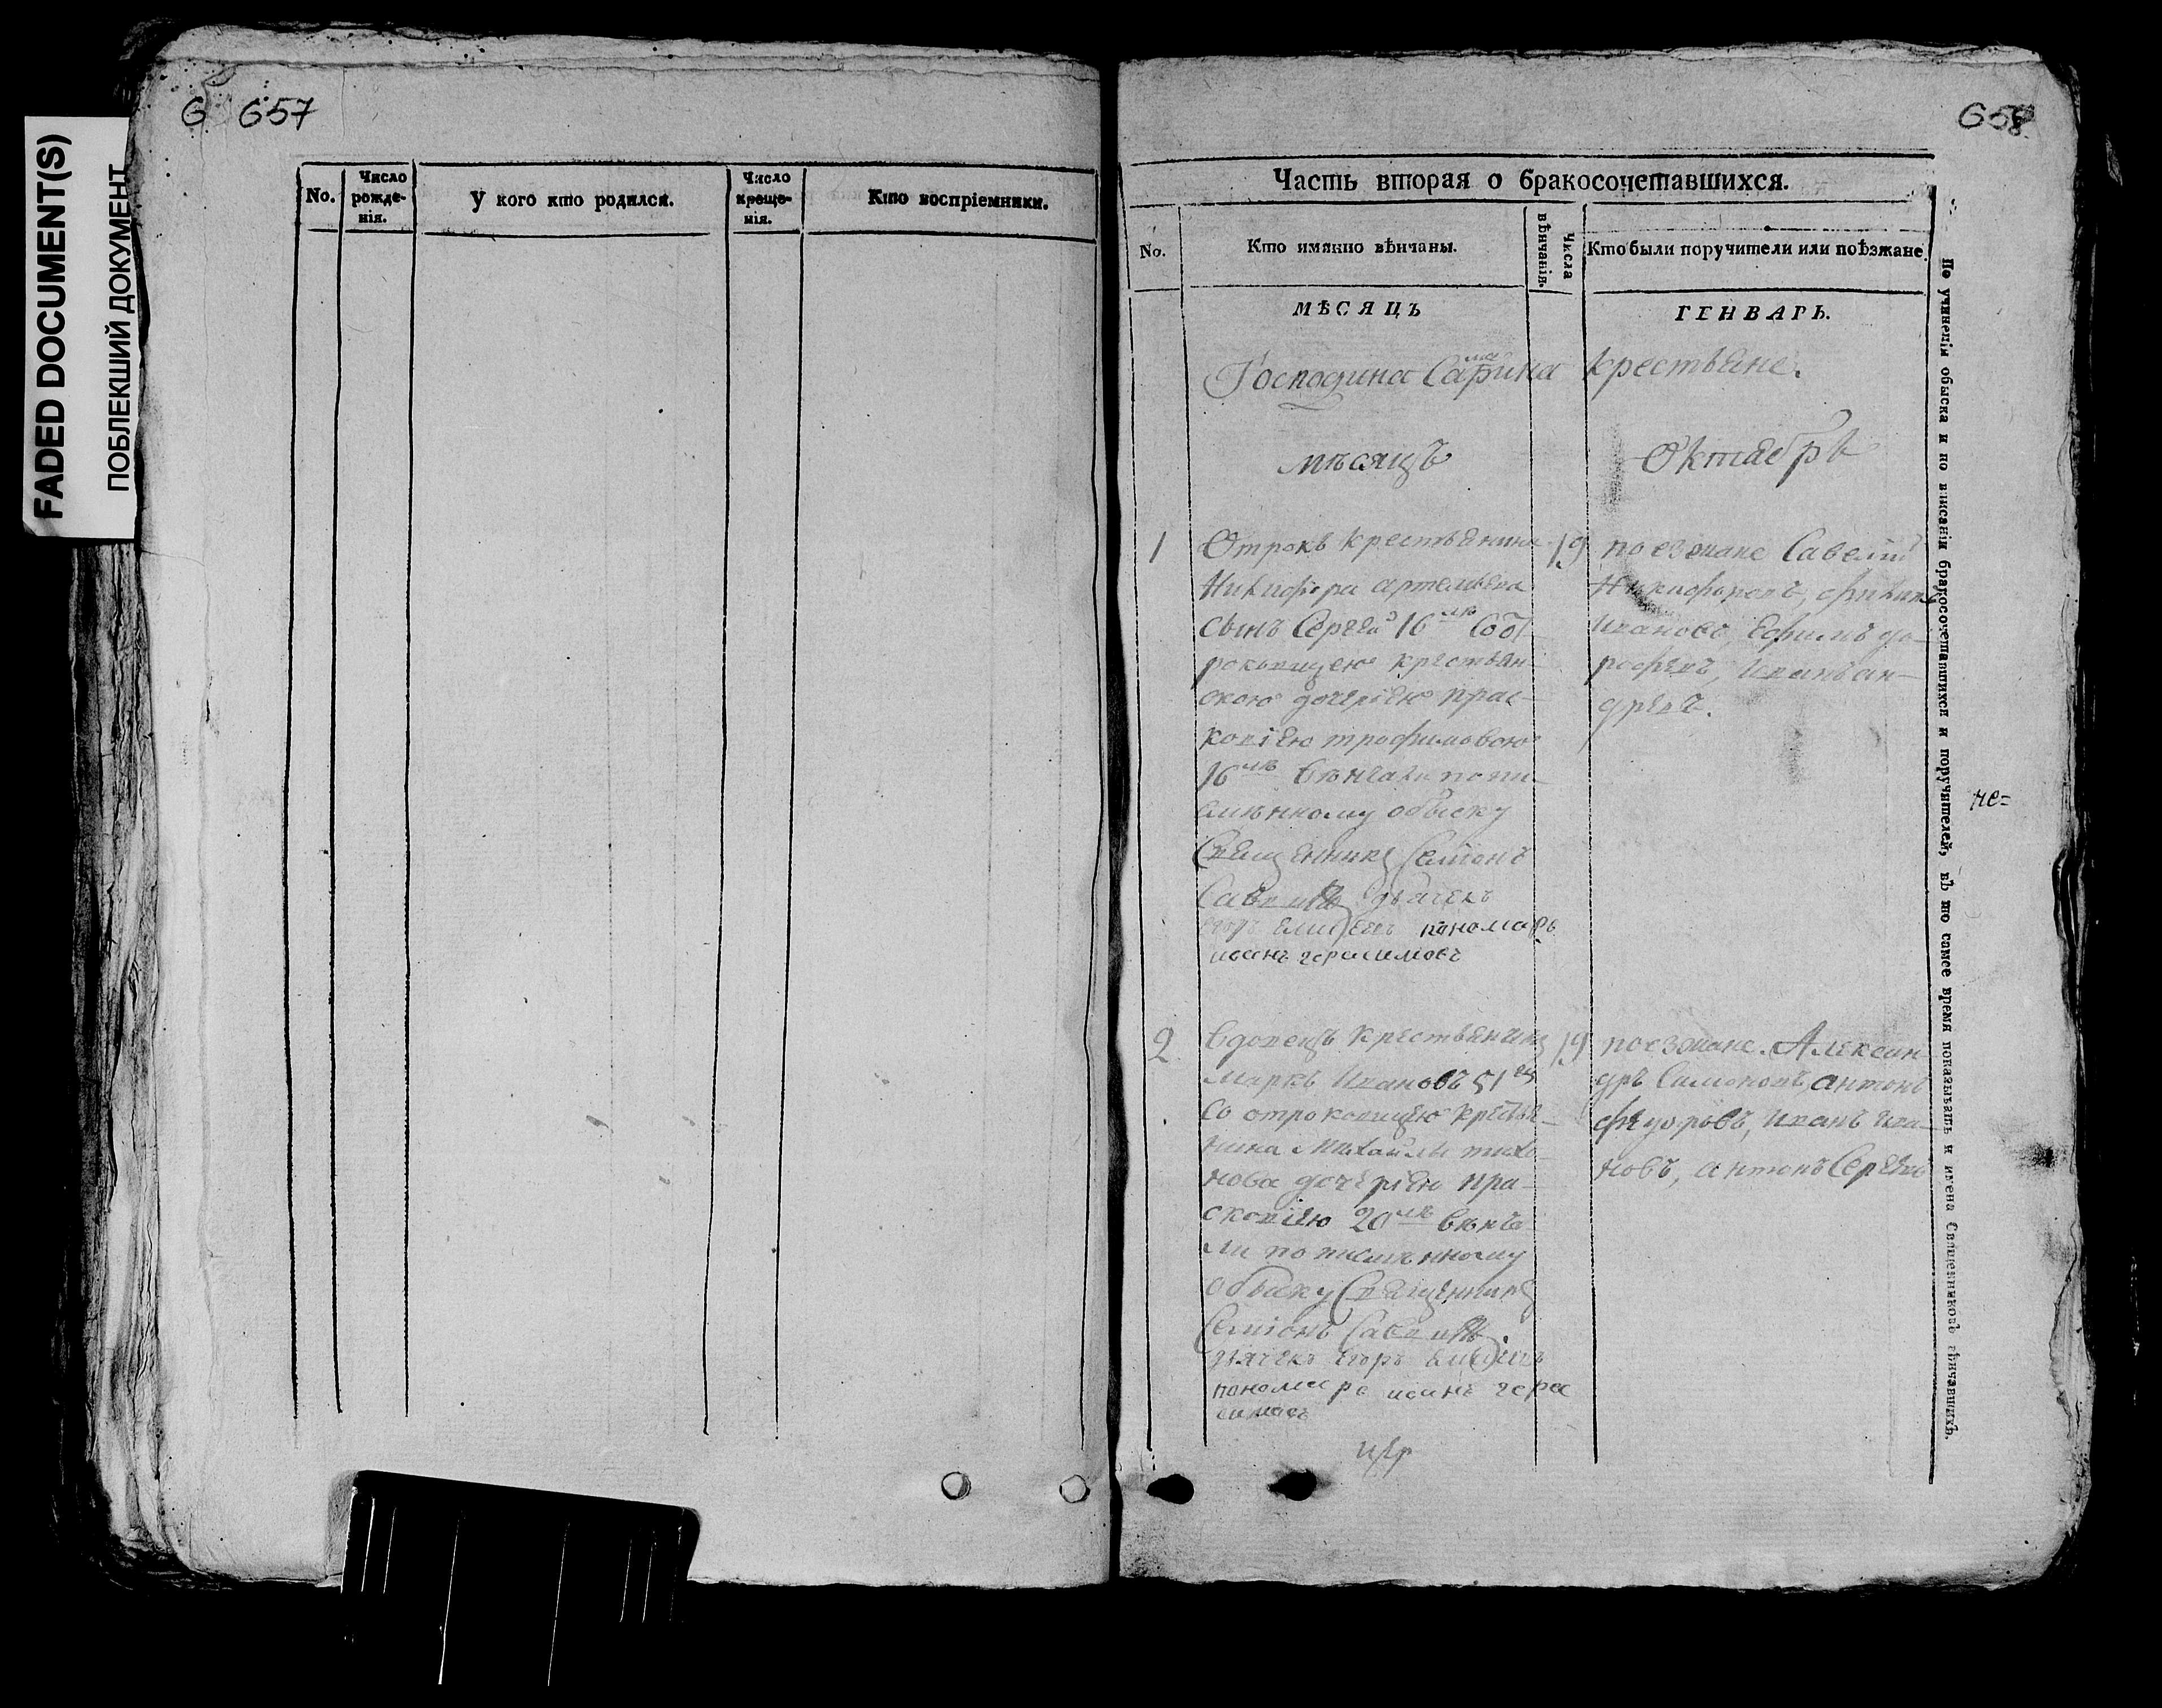 FADED DOCUMENT(S)
ПОБЛЕКШИЙ ДОКУМЕНТ
G 657
No.
Число рожде-нія.
У кого кто родился.
Число креще-нія.
Кто воспріемники.
658
Часть вторая о бракосочетавшихся.
No.
Кто имянно вѣнчаны.
Числа вѣнчанія.
Кто были поручители или поѣзжане.
МѢСЯЦЪ
ГЕНВАРЬ.
Господина крестьяне.
мѣсяцъ
Октябрь
1
Отрокъ крестьянина
Никифора артемьева
сынъ Сергей 16 лѣ Сот-
роковицею крестьян-
скою дочерїею прас-
ковїею трофимовою
16 лѣ вѣнчали по пи-
смѣнному обыску
Священникъ Семïонъ
дьячекъ
пономарь
иванъ герасимовъ
19
поезжане Савелий
Никифоровъ, филипъ
Ивановъ, Ефимъ до-
рофеевъ, Иванъ ан-
дреевъ.
2
Вдовецъ крестьянинъ
Маркъ Ивановъ 51
Со отроковицею крестья-
нина Михайлы тихо-
нова дочерїею пра-
сковїею 20 лѣ вѣнча
ли по писмѣнному
обыску Священникъ
Семïонъ
дьячекъ
пономарь иванъ гера
симовъ
19
поезжане. Алексан
дръ Симоновъ, антонъ
федоровъ, иванъ ива-
новъ, антонъ Сергеевъ
По учиненіи обыска и по вписаніи бракосочетавшихся и поручителей, въ то самое время показывать и имена Священниковъ вѣнчавшихъ.
не=